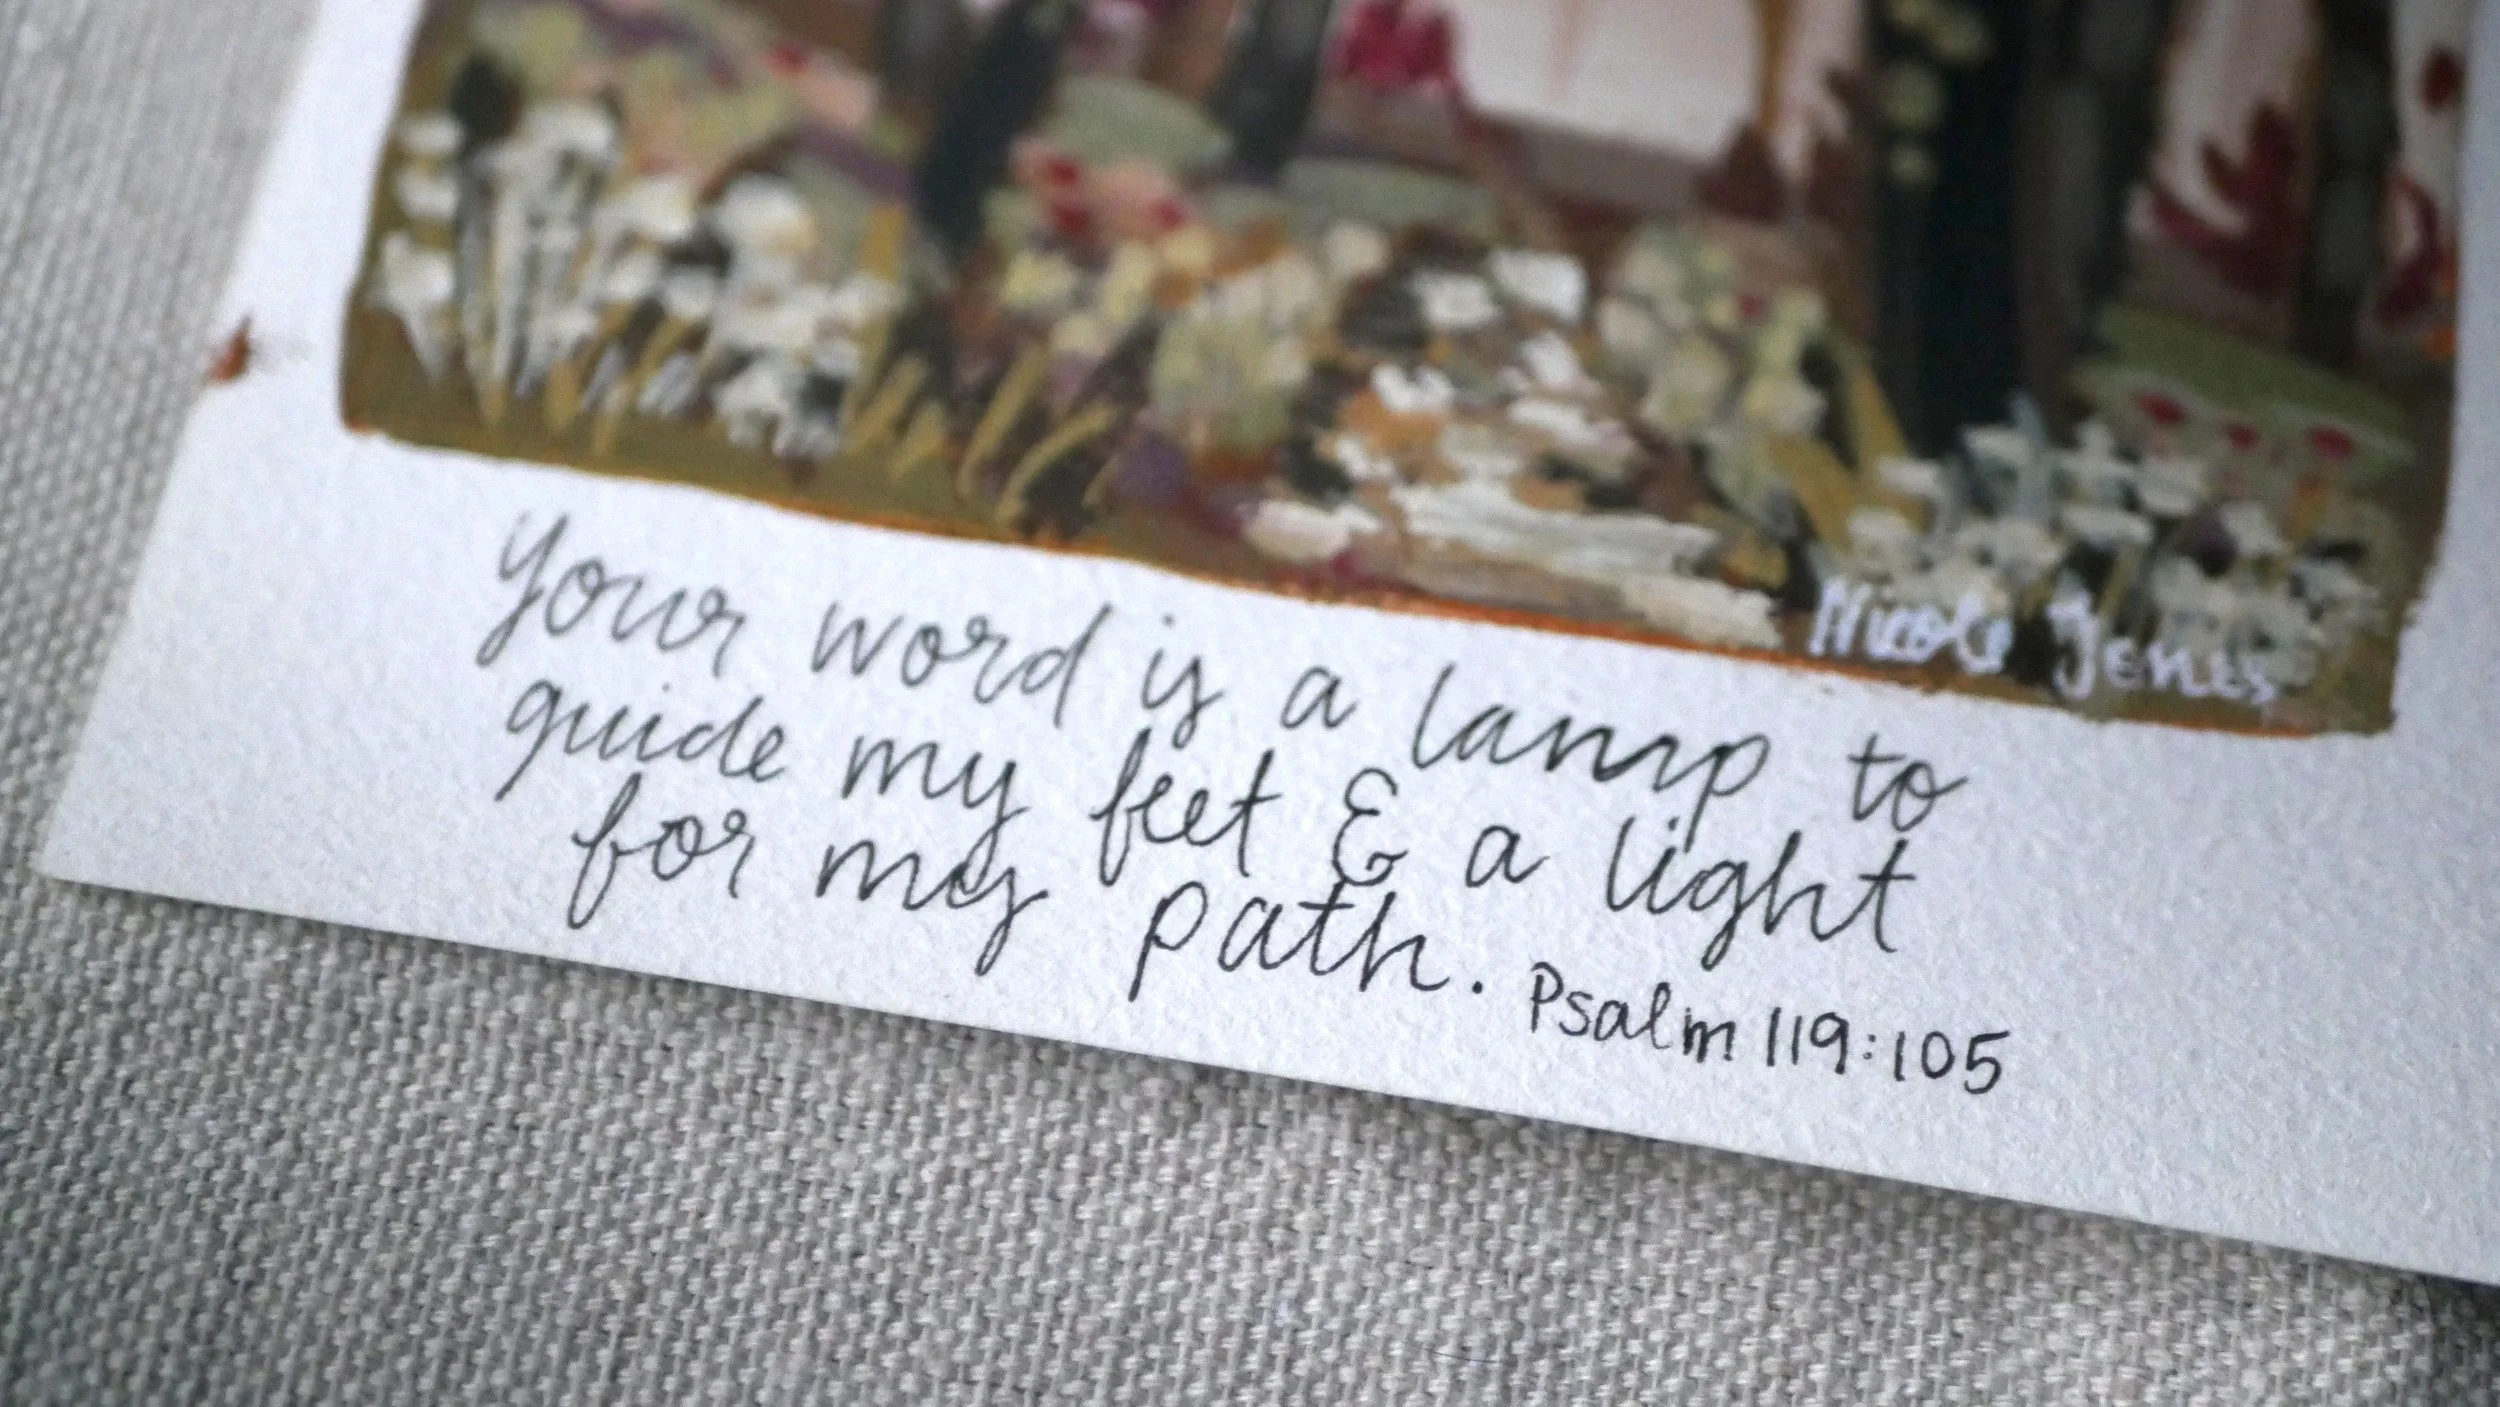 Nicole Jenes
your word is a lamp to
guide my feet & a light
for my path. Psalm 119:105